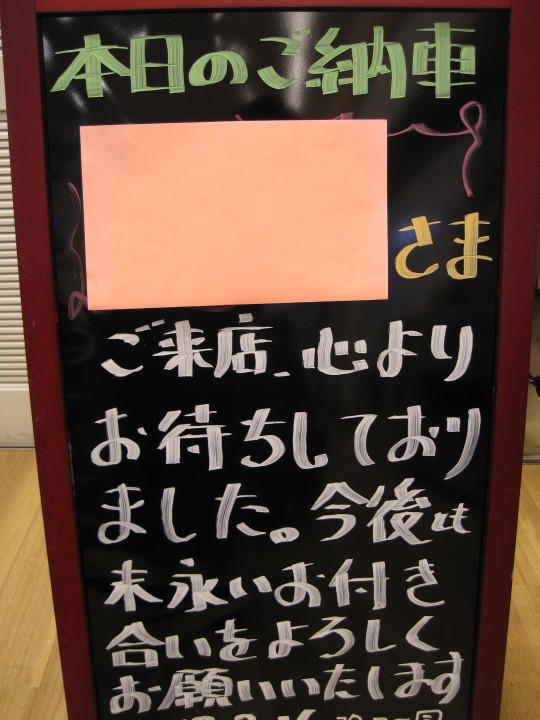 本日のご納車
さま
ご来店、心より
お待ちしており
ました。今後も
末永いお付き
合いをよろしく
お願いいたします